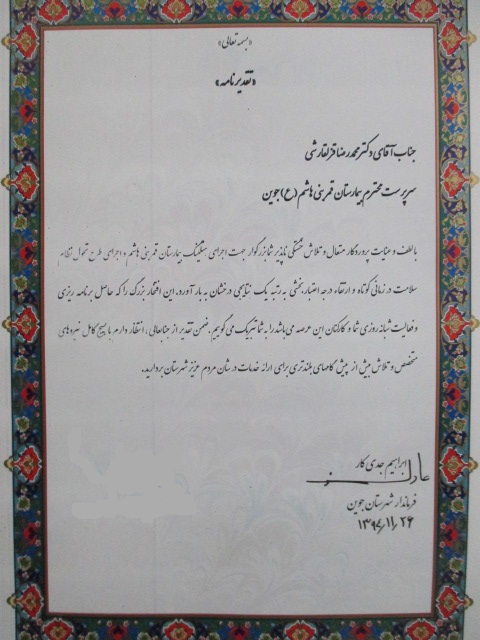 «بسمه تعالی»
«تقدیرنامه»
جناب آقای دکتر محمدرضا قزلقارشی
سرپرست محترم بیمارستان قمر بنی هاشم (ع) جوین
با لطف و عنایت پروردگار متعال و تلاش خستگی ناپذیر شما بزرگوار جهت اجرای بیمارستان قمر بنی هاشم و اجرای طرح تحول نظام
سلامت در زمانی کوتاه و ارتقاء درجه اعتبار بخشی به رتبه یک نتایجی درخشان به بار آورد. این افتخار بزرگ را که حاصل برنامه ریزی
و فعالیت شبانه روزی شما و کارکنان این عرصه می باشد را به شما تبریک می گوییم. ضمن تقدیر از جنابعالی، انتظار دارم با بسیج کامل نیروهای
متخصص و تلاش بیش از پیش گامهای بلندتری برای ارائه خدمات در شان مردم عزیز شهرستان بردارید.
ابراهیم جدی کار
فرماندار شهرستان جوین
۲۶/۱۱/